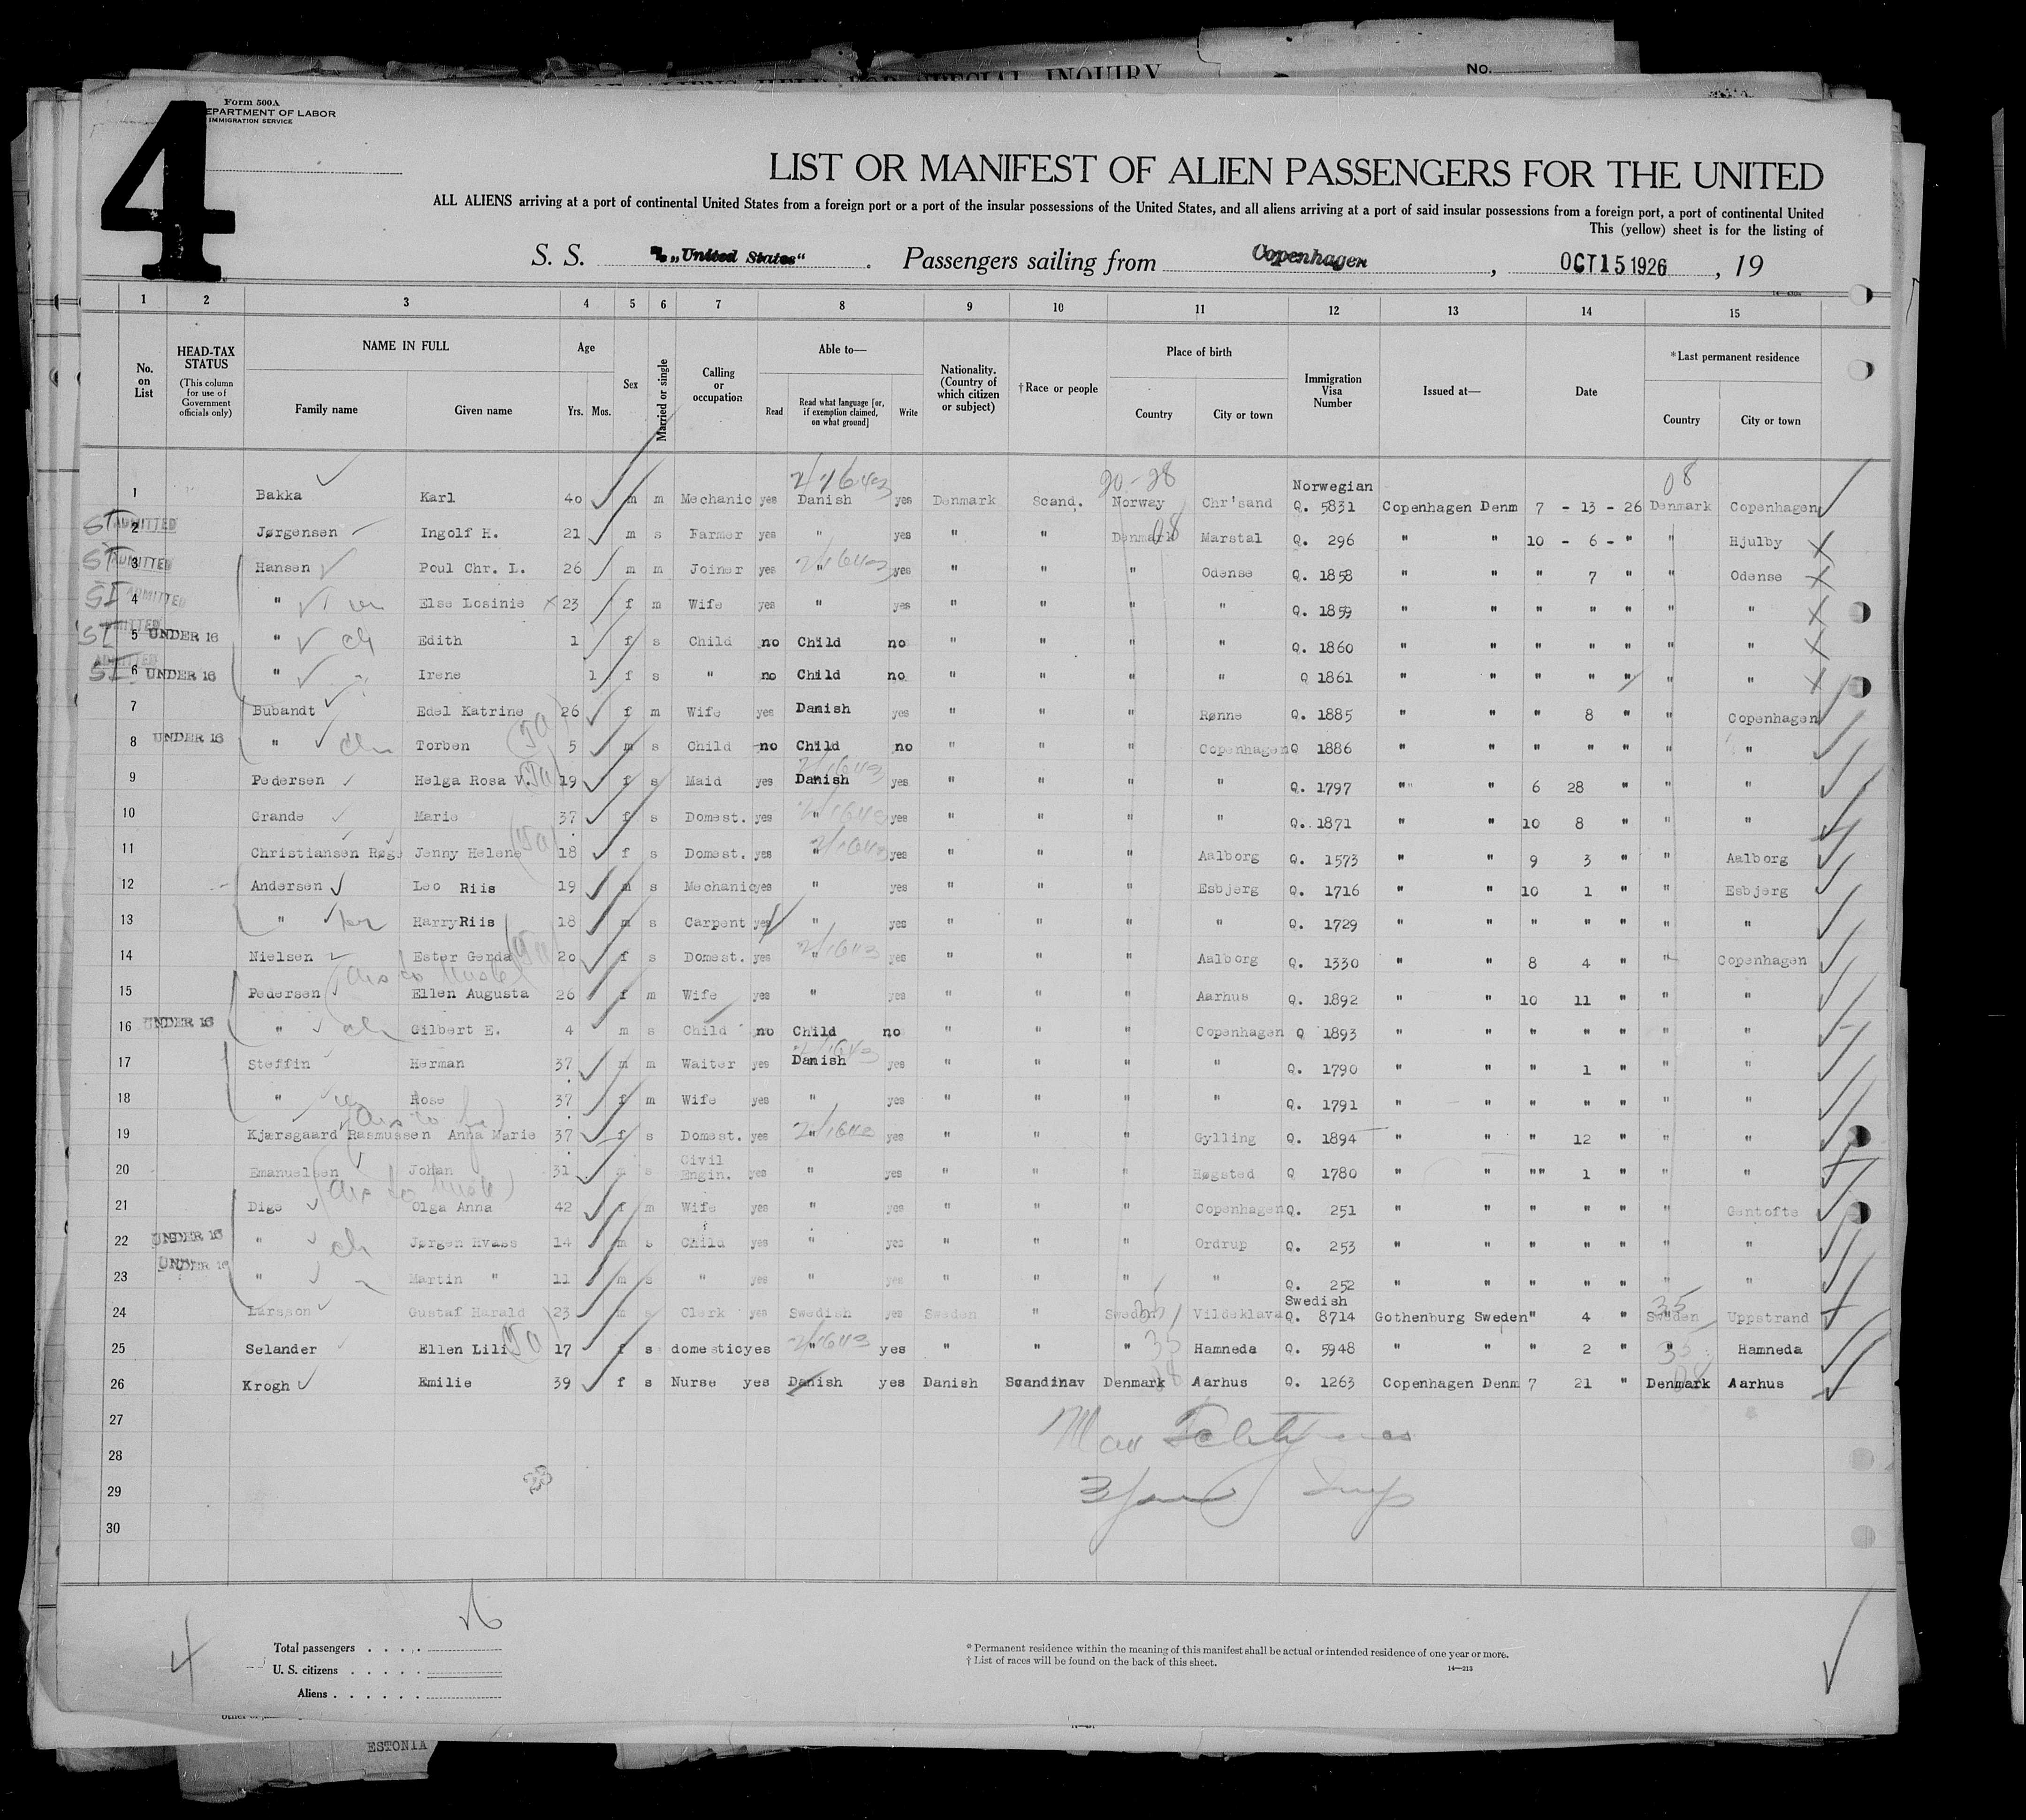 OF ALIENS HELD FOR SPECIAL INQUIRY
No.
4
Form 500A
DEPARTMENT OF LABOR
IMMIGRATION SERVICE
LIST OR MANIFEST OF ALIEN PASSENGERS FOR THE UNITED
ALL ALIENS arriving at a port of continental United States from a foreign port or a port of the insular possessions of the United States, and all aliens arriving at a port of said insular possessions from a foreign port, a port of continental United
This (yellow) sheet is for the listing of
S. S. „United States" . Passengers sailing from Copenhagen , OCT 15 1926 , 19
1 2 3 4 5 6 7 8 9 10 11 12 13 14 15
No. on List
HEAD-TAX STATUS (This column for use of Government officials only)
NAME IN FULL
Family name Given name
Age
Yrs. Mos.
Sex
Married or single
Calling or occupation
Able to—
Read Read what language [or, if exemption claimed, on what ground] Write
Nationality. (Country of which citizen or subject)
†Race or people
Place of birth
Country City or town
Immigration Visa Number
Issued at—
Date
*Last permanent residence
Country City or town
2/1643 20-28 08
1 Bakka Karl 40 m m Mechanic yes Danish yes Denmark Scand. Norway Chr'sand Norwegian Q. 5831 Copenhagen Denm 7 - 13 - 26 Denmark Copenhagen
SI ADMITTED 2 Jørgensen Ingolf H. 21 m s Farmer yes " yes " " Denmark 08 Marstal Q. 296 " " 10 - 6 - " " Hjulby
SI ADMITTED 3 Hansen Poul Chr. L. 26 m m Joiner yes " 2/1643 yes " " " Odense Q. 1858 " " " 7 " " Odense
SI ADMITTED 4 " Else Losinie 23 f m Wife yes " yes " " " " Q. 1859 " " " " " " "
SI ADMITTED 5 UNDER 16 " ch Edith 1 f s Child no Child no " " " " Q. 1860 " " " " " " "
SI ADMITTED 6 UNDER 16 " Irene 1 f s " no Child no " " " " Q 1861 " " " " " " "
7 Bubandt Edel Katrine 26 f m Wife yes Danish yes " " " Rønne Q. 1885 " " " 8 " " Copenhagen
8 UNDER 16 " Torben 5 m s Child no Child no " " " Copenhagen Q 1886 " " " " " " "
9 Pedersen Helga Rosa V. 19 f s Maid yes Danish 2/1643 yes " " " " Q. 1797 " " 6 28 " " "
10 Grande Marie 37 f s Domest. yes " 2/1643 yes " " " " Q. 1871 " " 10 8 " " "
11 Christiansen Røge Jenny Helene 18 f s Domest. yes " 2/1643 yes " " " Aalborg Q. 1573 " " 9 3 " " Aalborg
12 Andersen Leo Riis 19 m s Mechanic yes " yes " " " Esbjerg Q. 1716 " " 10 1 " " Esbjerg
13 " Harry Riis 18 m s Carpent yes " yes " " " " Q. 1729 " " " " " " "
14 Nielsen Ester Gerda 20 f s Domest. yes " 2/1643 yes " " " Aalborg Q. 1330 " " 8 4 " " Copenhagen
15 Pedersen Ellen Augusta 26 f m Wife yes " yes " " " Aarhus Q. 1892 " " 10 11 " " "
16 UNDER 16 " ch Gilbert E. 4 m s Child no Child no " " " Copenhagen Q 1893 " " " " " " "
17 Steffin Herman 37 m m Waiter yes Danish 2/1643 yes " " " " Q. 1790 " " " 1 " " "
18 " Rose 37 f m Wife yes " yes " " " " Q. 1791 " " " " " " "
19 Kjærsgaard Rasmussen Anna Marie 37 f s Domest. yes " 2/1643 yes " " " Gylling Q. 1894 " " " 12 " " "
20 Emanuelsen Johan 31 m s Civil Engin. yes " yes " " " Høgsted Q 1780 " " "" 1 " " "
21 Dige Olga Anna 42 f m Wife yes " yes " " " Copenhagen Q. 251 " " " " " " Gentofte
22 UNDER 16 " ch Jørgen Hvass 14 m s Child yes " yes " " " Ordrup Q. 253 " " " " " " "
23 UNDER 16 " Martin " 11 m s " yes " yes " " " " Q. 252 " " " " " " "
24 Larsson Gustaf Harald 23 m s Clerk yes Swedish yes Sweden " Sweden 35 Vildeklava Swedish Q. 8714 Gothenburg Sweden " 4 " Sweden 35 Uppstrand
25 Selander Ellen Lili 17 f s domestic yes " 2/1643 yes " " " 35 Hamneda Q. 5948 " " " 2 " " 35 Hamneda
26 Krogh Emilie 39 f s Nurse yes Danish yes Danish Scandinav Denmark Aarhus Q. 1263 Copenhagen Denm 7 21 " Denmark Aarhus
27
28
29
30
4
Total passengers . . . .
U. S. citizens . . . . .
Aliens . . . . . .
* Permanent residence within the meaning of this manifest shall be actual or intended residence of one year or more.
† List of races will be found on the back of this sheet.
14—213
ESTONIA